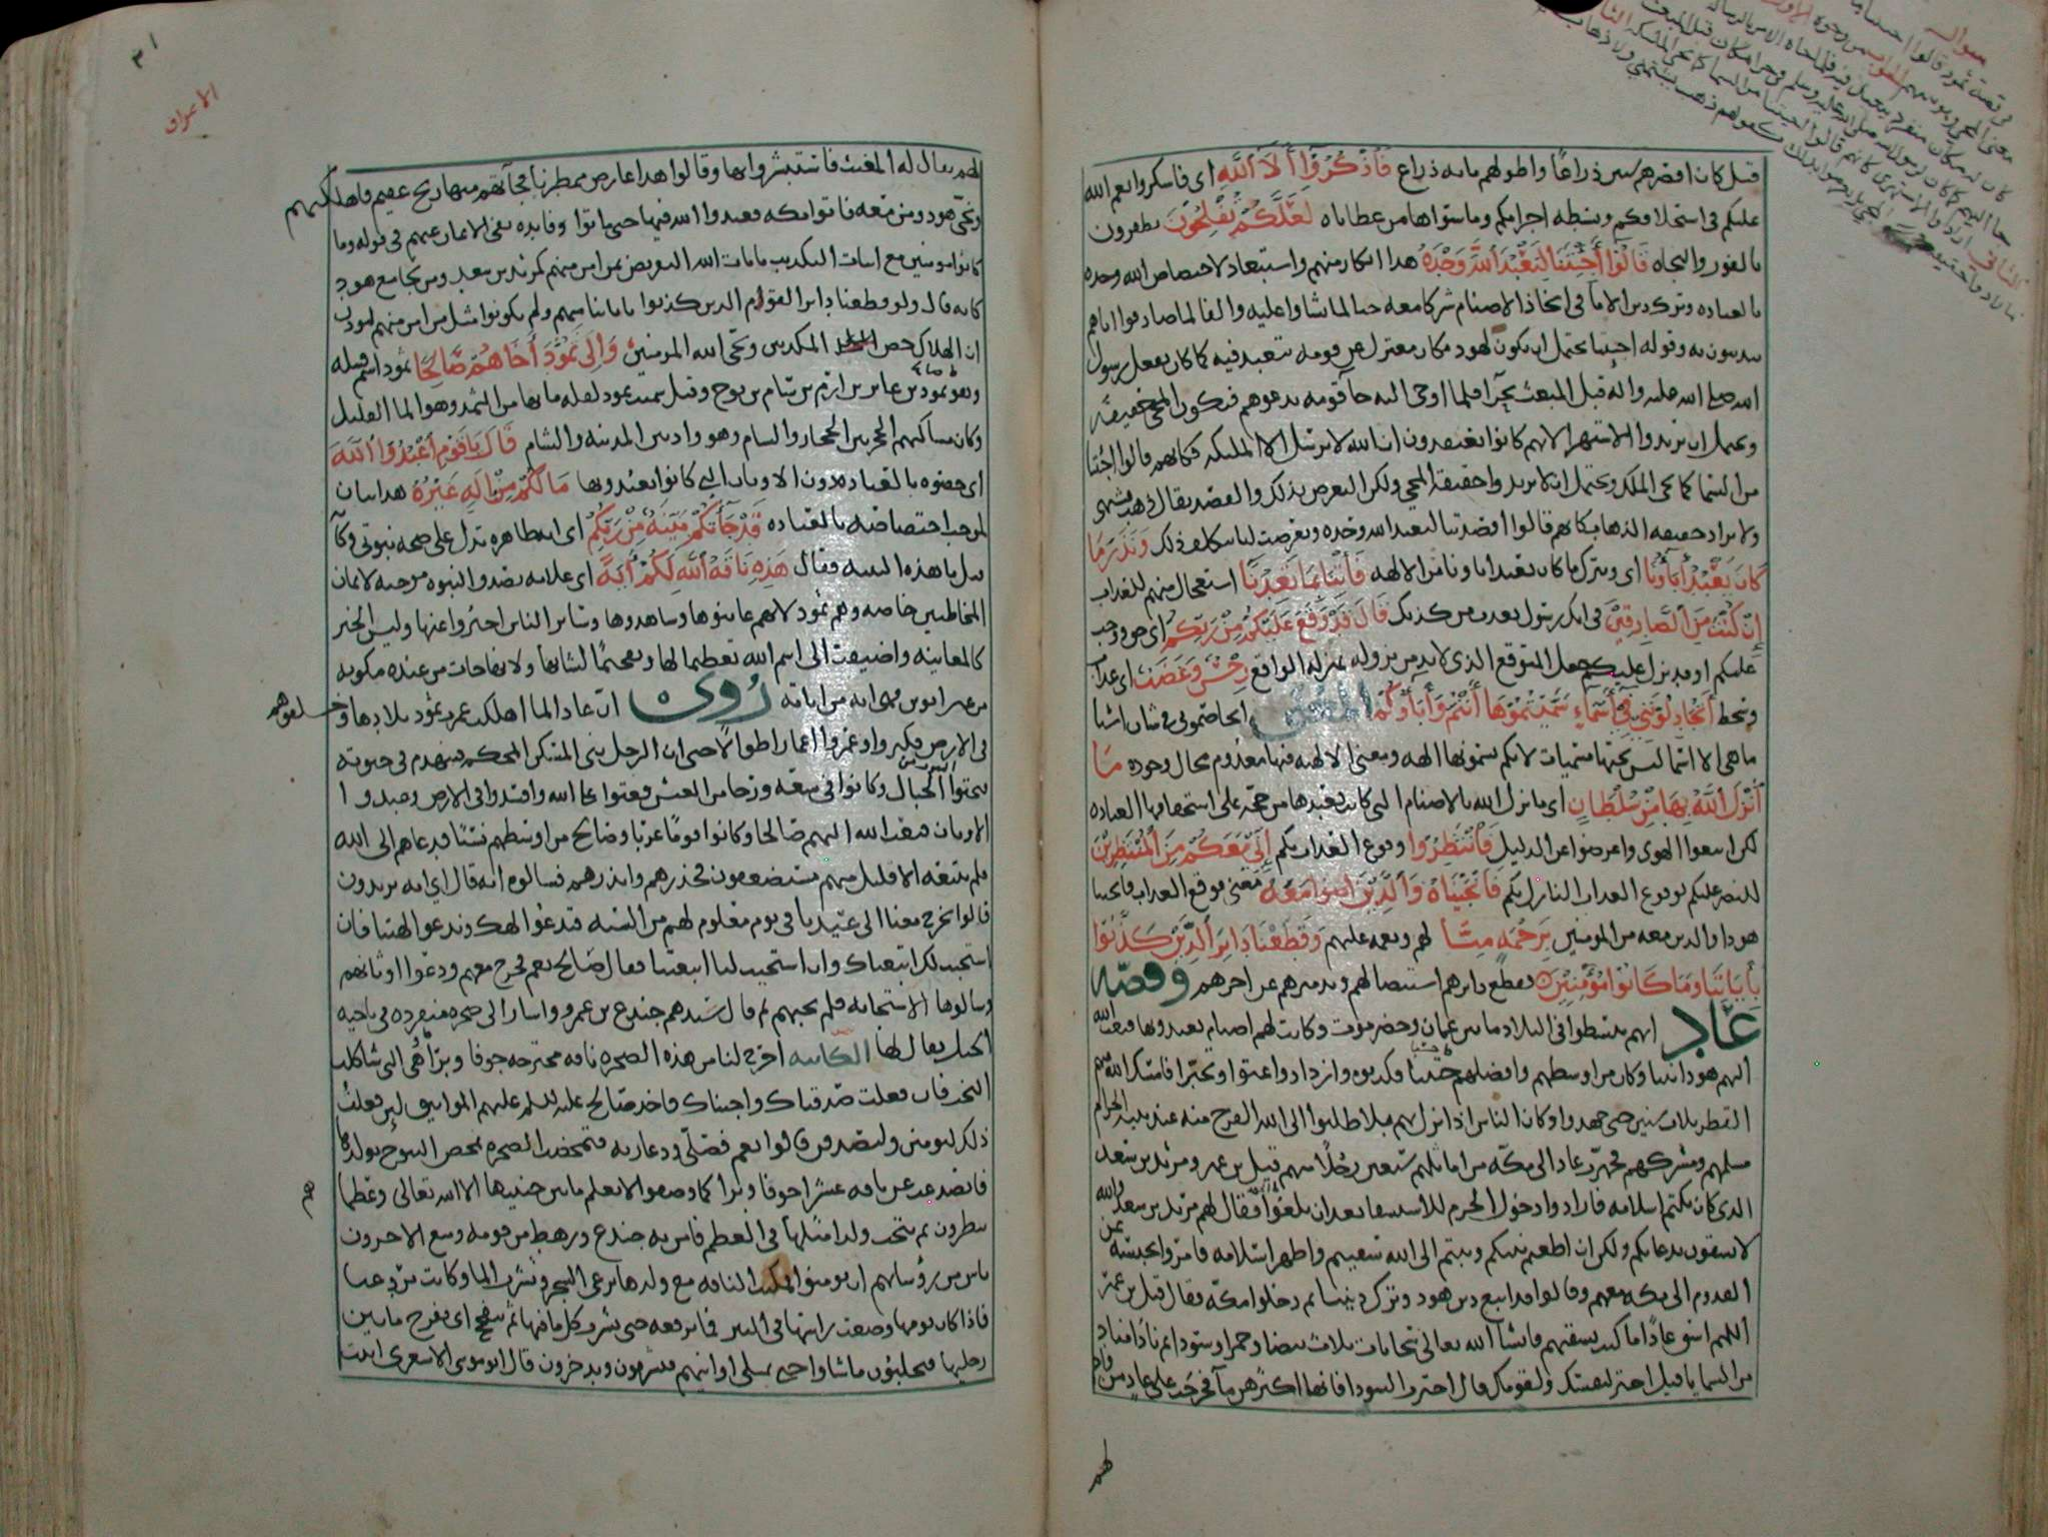 قيل كان اقصرهم ستين ذراعا واطولهم مايه ذراع فَاذْكُرُوا آلَاءَ اللَّهِ اى فاشكروا نعم الله
عليكم في استخلافكم وبسطه اجرامكم وما سواها من عطاياه لَعَلَّكُمْ تُفْلِحُونَ تظفرون
بالفوز والنجاه قَالُوا أَجِئْتَنَا لِنَعْبُدَ اللَّهَ وَحْدَهُ هذا انكار منهم واستبعاد لاختصاص الله وحده
بالعباده وترك دين الابا في اتخاذ الاصنام شركا معه حبا لما نشاوا عليه والفا لما صادفوا اباهم
يتدينون به وقوله اجيتنا يحتمل ان يكون لهود مكان معتزل عن قومه يتعبد فيه كما كان يفعل رسول
الله صلى الله عليه واله قبل المبعث بحرا فلما اوحى اليه جا قومه يدعوهم فيكون المجي حقيقة
ويحتمل ان يريدوا الاستهزا لانهم كانوا يعتقدون ان الله لا يرسل الا الملئكه فكانهم قالوا اجئتنا
من السما كما يجى الملك ويحتمل ان لا يريدوا حقيقة المجي ولكن التعرض بذلك والقصد يقال ذهب يشتمنى
ولا يراد حقيقه الذهاب كانهم قالوا اقصدتنا لنعبد الله وحده وتعرضت لنا بتكليف ذلك وَنَذَرَ مَا
كَانَ يَعْبُدُ آبَاؤُنَا اى ونترك ما كان يعبد اباونا من الالهه فَأْتِنَا بِمَا تَعِدُنَا استعجال منهم للعذاب
إِنْ كُنْتَ مِنَ الصَّادِقِينَ في انك رسول بعدت من كذبك قَالَ قَدْ وَقَعَ عَلَيْكُمْ مِنْ رَبِّكُمْ اى حق ووجب
عليكم او قد نزل عليكم جعل المتوقع الذى لا بد من نزوله بمنزله الواقع رِجْسٌ وَغَضَبٌ اى عذاب
وسخط أَتُجَادِلُونَنِي فِي أَسْمَاءٍ سَمَّيْتُمُوهَا أَنْتُمْ وَآبَاؤُكُمْ المعنى اتخاصمونى في شان اشيا
ما هي الا اسما ليس تحتها مسميات لانكم تسمونها الهه ومعنى الالهيه فيها معدوم محال وجوده مَا
أَنْزَلَ اللَّهُ بِهَا مِنْ سُلْطَانٍ اى ما نزل الله بالاصنام التي كانت تعبدها من حجه على استحقاقها العباده
لكن اتبعوا الهوى واعرضوا عن الدليل فَانْتَظِرُوا وقوع العذاب بكم إِنِّي مَعَكُمْ مِنَ الْمُنْتَظِرِينَ
للنصر عليكم لوقوع العذاب النازل بكم فَأَنْجَيْنَاهُ وَالَّذِينَ آمنوا مَعَهُ معنى فوقع العذاب فانجينا
هودا والذين معه من المومنين بِرَحْمَةٍ مِنَّا لهم ونعمه عليهم وَقَطَعْنَا دَابِرَ الَّذِينَ كَذَّبُوا
بِآيَاتِنَا وَمَا كَانُوا مُؤْمِنِينَ وقطع دابرهم استيصالهم وتدميرهم عن اخرهم وقصّه
عاد انهم تبسطوا في البلاد ما بين عمان وحضر موت وكانت لهم اصنام يعبدونها فبعث الله
اليهم هودا نبيا وكان من اوسطهم وافضلهم حسبا فكذبوه وازدادوا عتوا وتجبّرا فامسك الله عنهم
القطر ثلاث سنين حتى جهدوا وكان الناس اذا نزل بهم بلا طلبوا الى الله الفرج منه عند بيته الحرام
مسلمهم ومشركهم فجهزت عاد الى مكّه من اماثلهم سبعين رجُلًا منهم قيل بن عير ومرثد بن سعد
الذى كان يكتم اسلامه فارادوا دخول الحرم للاستسقا بعد ان بلغوا فقال لهم مرثد بن سعد والله
لا تسقون بدعائكم ولكن ان اطعتم نبيكم وتبتم الى الله سقيتم واظهر اسلامه فامروا بحبسه عن
القدوم الى مكه معهم وقالوا قد اتبع دين هود وترك ديننا ثم دخلوا مكّه فقال قيل بن عمز
اللهم اسق عادًا ما كنت تسقيهم فانشا الله تعالى سحابات ثلاث بيضا وحمرا وسودا ثم نادا مناد
من السما يا قيل اختر لنفسك ولقومك قال اخترت السودا فانها اكثرهن ما فخرجت على عاد من واد
لهم
الاعراف
٣١
لهم يقال له المغيث فاستبشروا بها وقالوا هذا عارض ممطرنا فجآتهم منها ريح عقيم فاهلكتهم
ونجّى هود ومن معه فاتوا مكه فعبدوا الله فيها حتى ماتوا وفايده نفى الايمان عنهم في قوله وما
كانوا مومنين مع اثبات التكذيب بايات الله التعريض بمن امن منهم كمرثد بن سعد ومن نجا مع هود
كانه قال ولو قطعنا دابر القوم الذين كذبوا باياتنا منهم ولم يكونوا مثل من امن منهم ليوذن
ان الهلاك خص المكذبين ونجى الله المومنين وَإِلَى ثَمُودَ أَخَاهُمْ صَالِحًا ثمود اسم قبيله
وهو ثمود بن عابر بن ارم بن سام بن نوح وقيل سميت ثمود لقله مايها من الثمد وهو الما القليل
وكان مساكنهم الحجر بين الحجاز والشام وهو واد بين المدينه والشام قَالَ يَا قَوْمِ اعْبُدُوا اللَّهَ
اى خصوه بالعباده دون الاوثان التي كانوا يعبدونها مَا لَكُمْ مِنْ إِلَهٍ غَيْرُهُ هذا بيان
لموجب اختصاصه بالعباده قَدْ جَاءَتْكُمْ بَيِّنَةٌ مِنْ رَبِّكُمْ اى ايه ظاهره تدل على صحه نبوتى وكآنه
قيل ما هذه البينه فقال هَذِهِ نَاقَةُ اللَّهِ لَكُمْ آيَةً اى علامه بصدق النبوه موجبه لايمان
المخاطبين خاصه وهم ثمود لانهم عاينوها وشاهدوها وساير الناس اخبروا عنها وليس الخبر
كالمعاينه واضيفت الى اسم الله تعظيما لها وتفخيمًا لشانها ولانها جات من عنده مكونه
من غير ابوين فهى ايه من اياته رُوى ان عاد لما اهلكت عمرت ثمود بلادها وخلفوهم
في الارض فكثروا وعمروا اعمارا طوالا حتى ان الرجل يبنى المسكن المحكم فينهدم في حيوته
فنحتوا البيوت من الجبال وكانوا في سعه ورخا من العيش فعتوا على الله وافسدوا في الارض وعبدوا
الاوثان فبعث الله اليهم صالحا وكانوا قومًا عربا وصالح من اوسطهم نسبًا فدعاهم الى الله
فلم يتبعه الا قليل منهم مستضعفون فحذرهم وانذرهم فسالوه ايه قال اي ايه تريدون
قالوا تخرج معنا الى عيدنا في يوم معلوم لهم من السنه فتدعوا الهك وندعوا الهتنا فان
استجيب لك اتبعناك وان استجيب لنا اتبعتنا فقال صالح نعم فخرج معهم ودعوا اوثانهم
وسالوها الاستجابه فلم تجبهم ثم قال سيدهم جندع بن عمرو واشار الى صخره منفرده في ناحيه
الجبل يقال لها الكاثبه اخرج لنا من هذه الصخره ناقه مخترجه جوفا وبرآ هى التى شاكلت
البخت فان فعلت صدقناك واجبناك فاخذ صالح عليه السلم عليهم المواثيق لين فعلت
ذلك لتومنن ولتصدقن قالوا نعم فصلّى ودعا ربه فتمخضت الصخره تمخض النتوج بولدها
فانصدعت عن ناقه عشرا جوفا وبرا كما وصفوا لا يعلم ما بين جنبيها الا الله تعالى وعظما
هم
ينظرون ثم نتجت ولدا مثلها في العظم فامن به جندع ورهط من قومه ومنع الاخرون
ناس من رؤسايهم ان يومنوا فمكثت الناقه مع ولدها ترعى الشجر وتشرب الما وكانت ترد غبا
فاذا كان يومها وضعت راسها في البير فما ترفعه حتى تشرب كل ما فيها ثم تتفحج اى تفرج ما بين
رجليها فيحلبون ما شاوا حتى تمتلى اوانيهم فيشربون ويدخرون قال ابو موسى الاشعرى اتيت